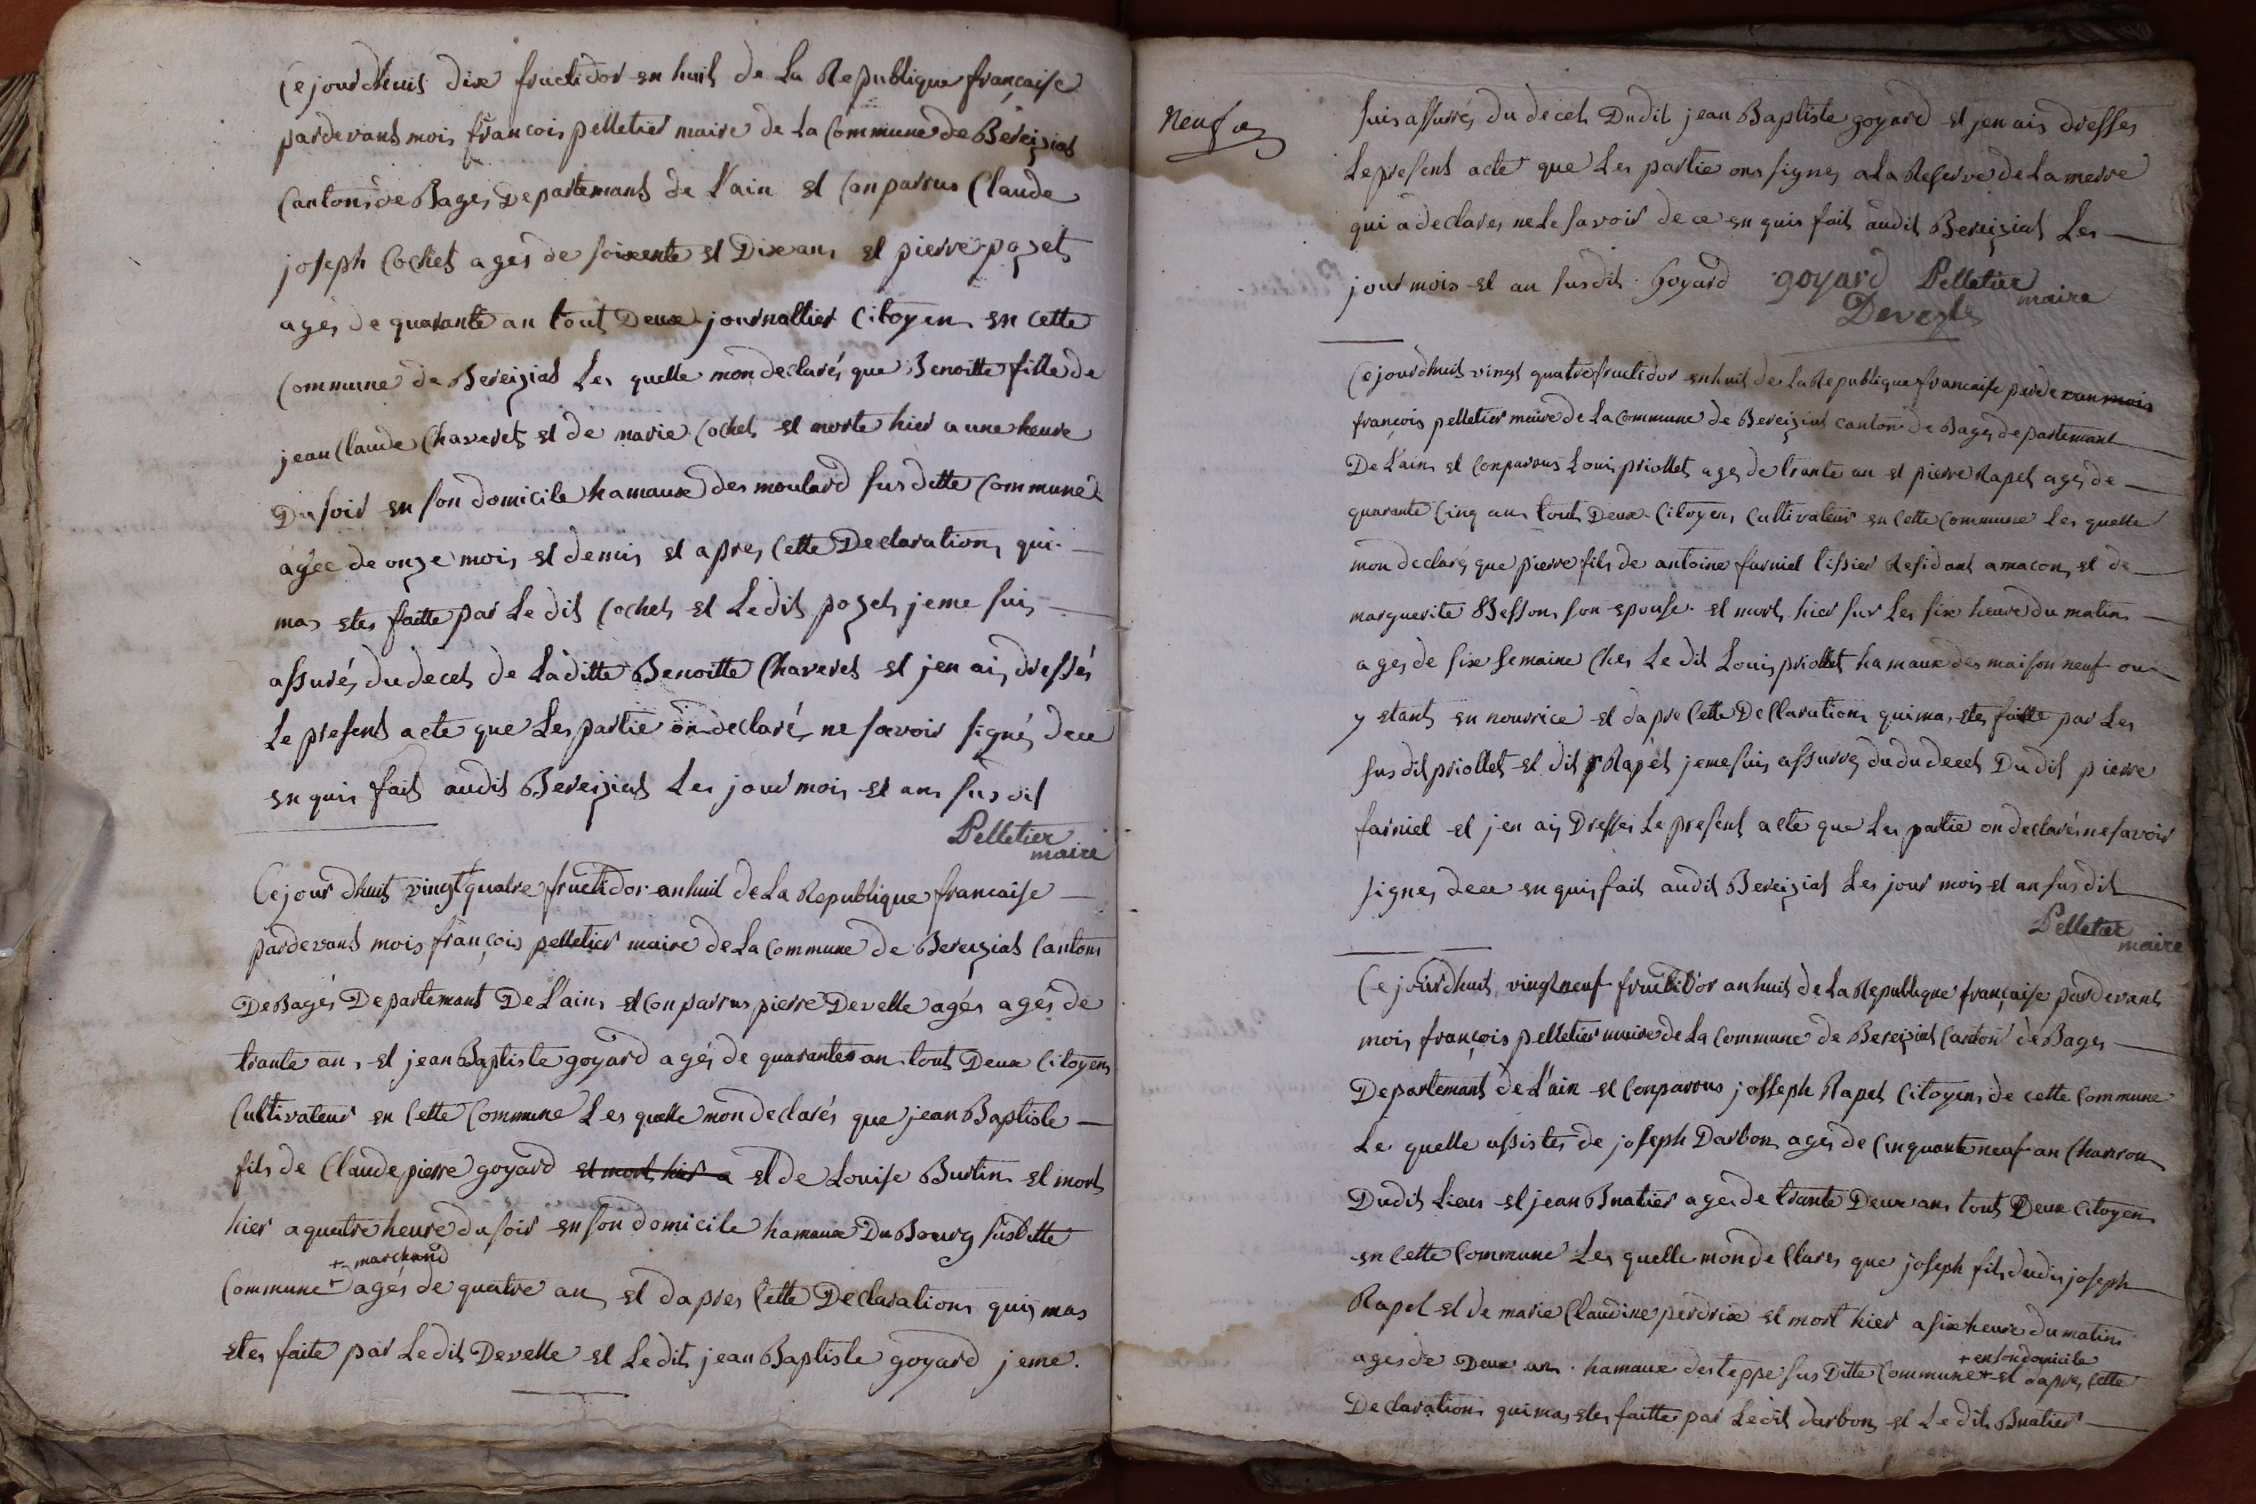 Cejourdhuit dixe fructidor en huit de La Republique française
pardevants mois françois pelletier maire de La Commune de Béreiziat
Cantons de Bages Departemants de L'ain et Conparrus Claude
joseph Cochet ages de soixente et Dixe ans et pierre pozet
ages de quarante an tout Deux journallier Citoyen en Cette
Commune de Bereiziat Les quelle mon declarés que Benoitte fille de
jean Claude Chaveret et de marie Cochet et morte hier a une heure
Du soir en son domicile hamaux des moulard sus ditte Commune
agée de onze mois et demis et apres Cette Declarations qui
mas etes faitte par Le dit Cochet et Ledit pozet je me suis
assurés du decet de Laditte Benoitte Chaveret et jen ais dressés
Le present acte que Les partie on declaré ne savoir signés de ce
en quis fait audit Bereiziat Les jour mois et ans susdit
Pelletier
maire
Cejour dhuit vingt quatre fructidor an huit de La Republique francaise
pardevant mois françois pelletier maire de La Commune de Bereiziat Cantons
De Bagés Departemant De L'ains et Conparrus pierre Develle agés agés de
trante an, et jean Baptiste goyard agés de quarantes an tout Deux Citoyens
Cultivateur en Cette Commune Les quelle mon declarés que jean Baptiste
fils de Claude pierre goyard et mort hier a et de Louise Burtin et mort
hier a quatre heure du soir en son domicile hamaux Du Bourg susditte
+ marchand
Commune + agés de quatre an et dapres Cette Declarations quis mas
etes faite par Ledit Develle et Ledit jean Baptiste goyard je me
Neuf
suis assurés du decet Dudit jean Baptiste goyard et jen ais dresses
Le present acte que Les partie ons signes a La Reserve de La merre
qui a declares ne Le savoir de ce en quis fait audit Bereiziat Les
jour mois et an susdit Goyard goyard Pelletier
maire
Cejourdhuit vingt quatre fructidor en huit de La Republique francaise pardevan mois
françois pelletier maire de La Commune de Bereiziat canton de Bages departemant
De L'ain et Conparrus Louis priollet ages de trante an et pierre Rapet ages de
quarante Cinq ans tout Deux Citoyens Cultivateur en Cette Commune Les quelle
mon declarés que pierre fils de antoine farniel tissier Residant a macon et de
marguerite Besson son epouse et mort hier sur Les sixe heure du matin
ages de sixe semaine Ches Le dit Louis priollet hamaux des maison neuf ou
y etant en nourrice et dapre Cette Declarations qui mas etes faitte par Les
susdit priollet et dit Rapet je me suis assurres du du decet Dudit pierre
farniel et jen ais Dresses Le present acte que Les partie on declarés ne savoir
signes de ce en quis fait audit Bereiziat Les jour mois et an susdit
Pelletier
maire
Cejourdhuit vingt neuf fructidor an huit de La Republique française pardevant
mois françois pelletier maire de La Commune de Bereiziat Canton de Bages
Departemant de L'ain et Conparrus josseph Rapet Citoyens de cette Commune
Le quelle assistes de joseph Darbon ages de Cinquante neuf an Charron
Dudit Lieus et jean Buatier ages de trante Deux ans tout Deux Citoyens
en Cette Commune Les quelle mon de Clares que joseph fils dudis joseph
Rapet et de marie Claudine perdrix et mort hier a sixe heure du matin
ages de Deux ans hamaux des teppe sus Ditte Commune + et dapres Cette
+ en son domicile
Declarations qui mas etes faitte par Ledit darbon et Le dit Buatier